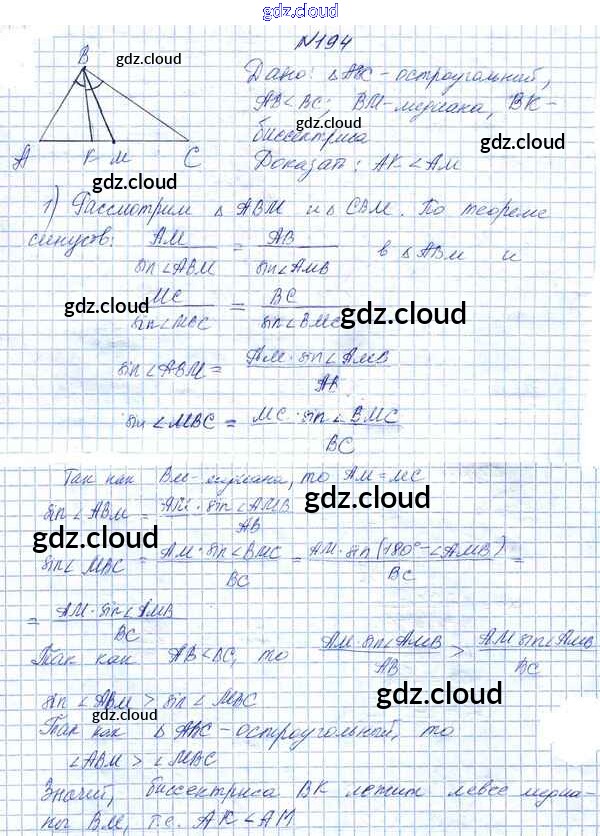 gdz.cloud
№194
B
gdz.cloud
Дано: △ABC - остроугольный,
AB<BC; BM-медиана, BK-
gdz.cloud
биссектриса
A K M C
Доказат: AK<AM
gdz.cloud
1) Рассмотрим △ABM и △CBM. По теореме
gdz.cloud
синусов: AM / sin∠ABM = AB / sin∠AMB в △ABM и
gdz.cloud
MC / sin∠MBC = BC / sin∠BMC
gdz.cloud
gdz.cloud
sin∠ABM = AM·sin∠AMB / AB
gdz.cloud
sin∠MBC = MC·sin∠BMC / BC
Так как BM-медиана, то AM=MC
gdz.cloud
sin∠ABM = AM·sin∠AMB / AB
gdz.cloud
gdz.cloud
sin∠MBC = AM·sin∠BMC / BC = AM·sin(180°-∠AMB) / BC =
= AM·sin∠AMB / BC
gdz.cloud
Так как AB<BC, то AM·sin∠AMB / AB > AM sin∠AMB / BC
sin∠ABM > sin∠MBC
gdz.cloud
gdz.cloud
Так как △ABC-остроугольный, то
∠ABM > ∠MBC
gdz.cloud
Значит, биссектриса BK лежит левее медиа-
ны BM, т.е. AK<AM
gdz.cloud